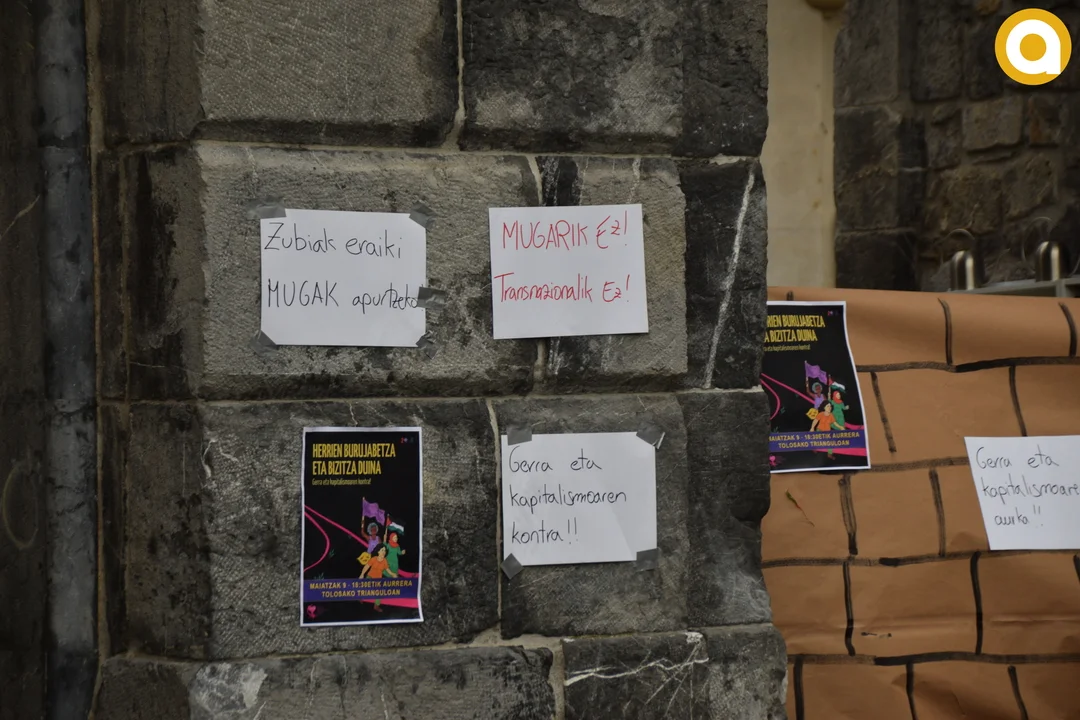 Zubiak eraiki
MUGAK apurtzeko
MUGARIK Ez!
Transnazionalik Ez!
HERRIEN BURUJABETZA
ETA BIZITZA DUINA
Gerra eta kapitalismoaren kontra!
MAIATZAK 9 - 18:30ETIK AURRERA
TOLOSAKO TRIANGULOAN
Gerra eta
kapitalismoaren
kontra!!
RIEN BURUJABETZA
A BIZITZA DUINA
a eta kapitalismoaren kontra!
MAIATZAK 9 - 18:30ETIK AURRERA
TOLOSAKO TRIANGULOAN
Gerra eta
kapitalismoare
aurka!!
a